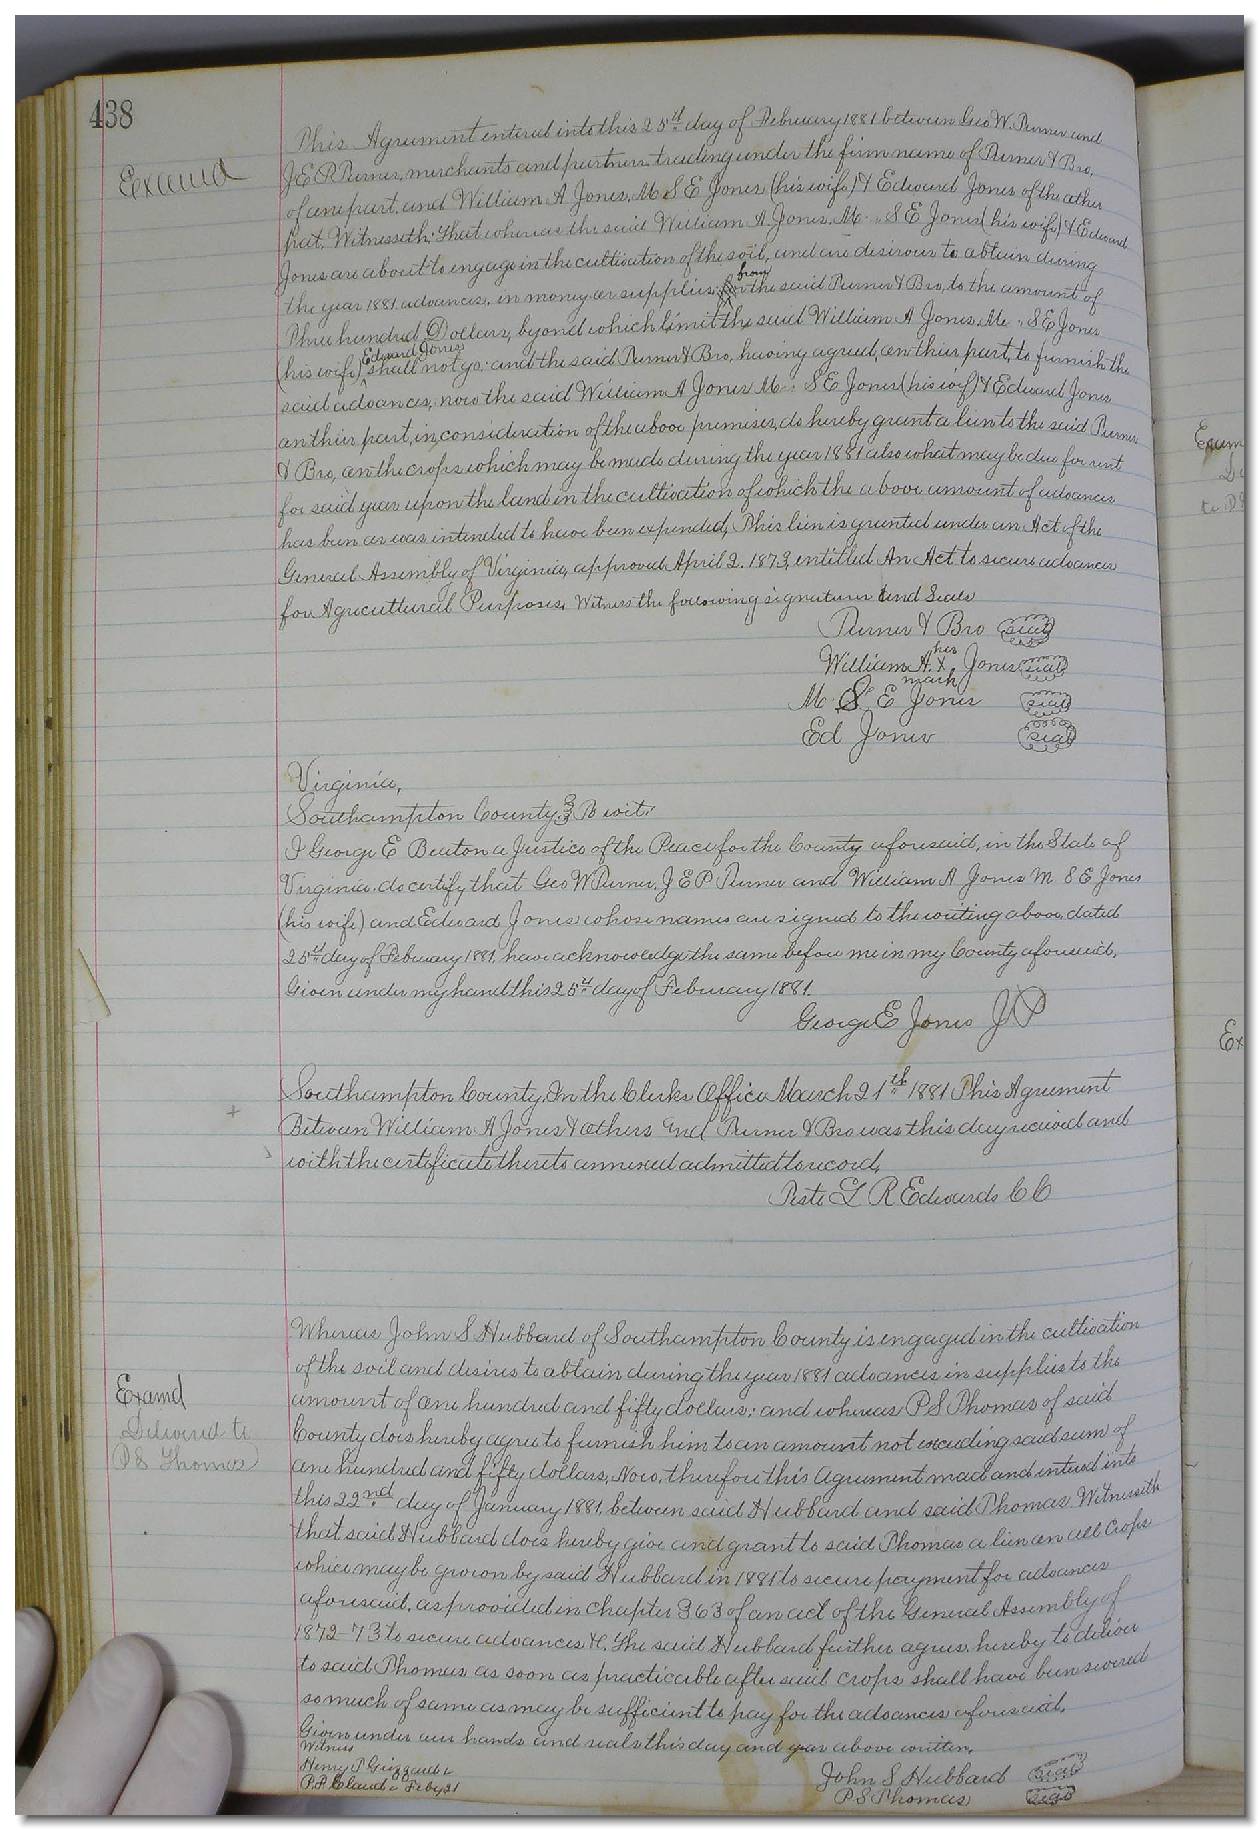 438
Examd
This Agreement entered into this 25th day of February 1881 between Geo W. Turner and
J.E.P. Turner, merchants and partners trading under the firm name of Turner & Bro,
of one part, and William A Jones, M. S E Jones (his wife) & Edward Jones of the other
part, Witnesseth: that whereas the said William A. Jones, M. S E Jones (his wife) & Edward
Jones are about to engage in the cultivation of the soil, and are desirous to obtain during
the year 1881 advances, in money or supplies, from the said Turner & Bro, to the amount of
Three hundred Dollars, beyond which limit the said William A Jones, M. S E Jones
(his wife) Edward Jones shall not go: and the said Turner & Bro, having agreed, on thier part, to furnish the
said advances, now the said William A Jones M. S E Jones (his wif) & Edward Jones
on thier part, in consideration of the above premises, do hereby grant a lien to the said Turner
& Bro, on the crops which may be made during the year 1881 also what may be due for rent
for said year upon the land in the cultivation of which the above amount of advances
has been or was intended to have been expended, This lien is granted under an Act of the
General Assembly of Virginia, approved April 2. 1873, entitled An Act to secure advances
for Agricultural Purposes. Witness the following signatures and Seals
Turner & Bro seal
William A. his X mark Jones seal
M. S. E Jones seal
Ed Jones seal
Virginia,
Southampton County, To wit:
I George E Beaton a Justice of the Peace for the County aforesaid, in the State of
Virginia do certify that Geo W Turner, J E P Turner and William A Jones M. S E Jones
(his wife) and Edward Jones whose names are signed to the writing above, dated
25th day of February 1881, have acknowledge the same before me in my County aforesaid,
Given under my hand this 25th day of February 1881.
George E Jones J P
Southampton County, In the Clerks Office March 21th 1881 This Agreement
Between William A Jones & others and Turner & Bro was this day received and
with the certificate thereto annexed admitted to record,
Teste L R Edwards C C
Examd
Delivered to
P S Thomas
Whereas John S Hubbard of Southampton County is engaged in the cultivation
of the soil and desires to obtain during the year 1881 advances in supplies to the
amount of one hundred and fifty dollars; and whereas P S Thomas of said
County does hereby agree to furnish him to an amount not exceeding said sum of
one hundred and fifty dollars, Now, therefore this Agreement mad and entered into
this 22nd day of January 1881, between said Hubbard and said Thomas Witnesseth
that said Hubbard does hereby give and grant to said Thomas a lien on all crops
which may be grown by said Hubbard in 1881 to secure payment for advances
aforesaid, as provided in chapter 363 of an act of the General Assembly of
1872-73 to secure advances &c. The said Hubbard further agrees hereby to deliver
to said Thomas as soon as practicable after said crops shall have been severed
so much of same as may be sufficient to pay for the advances aforesaid,
Given under our hands and seals this day and year above written,
Witness
Henry T Grizzard
P.P. Claud Feby 21
John S Hubbard seal
P S Thomas seal